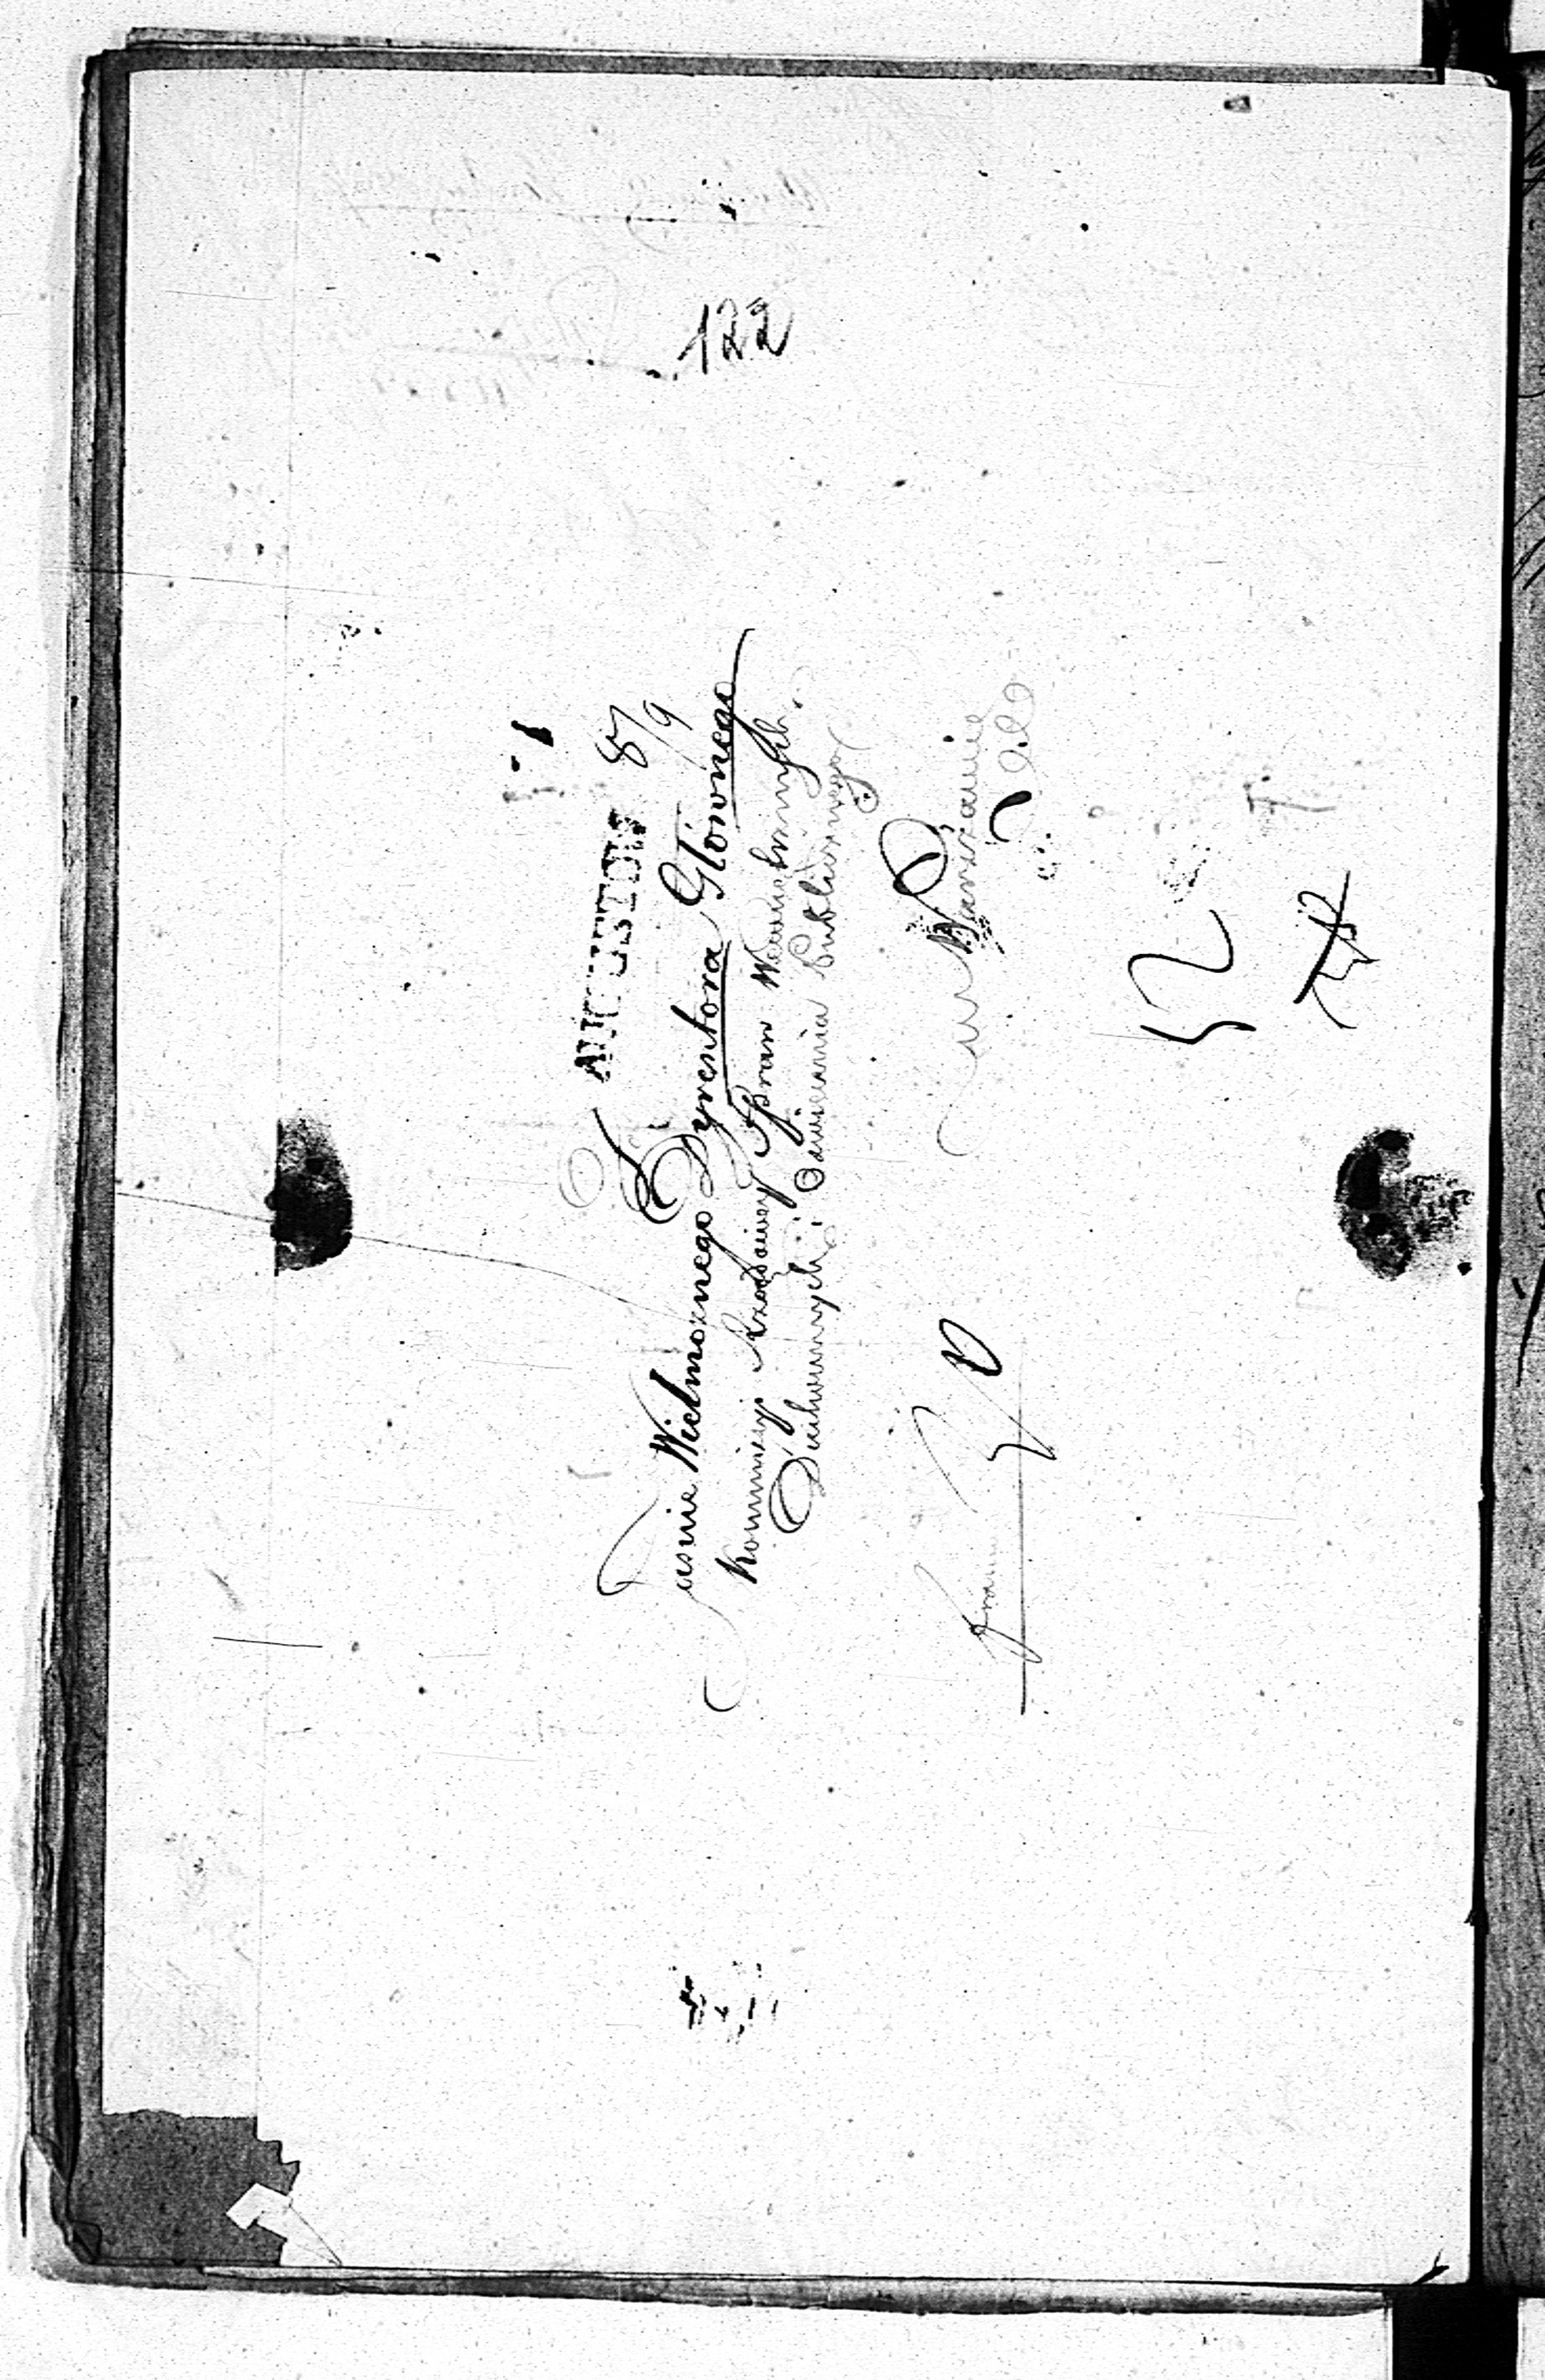 122
AUGUSTOW 8/9
Jaśnie Wielmożnego Dyrektora Głównego
Kommisyi Rządowey Spraw Wewnętrznych,
Duchownych i Oświecenia Publicznego
w Warszawie
franco